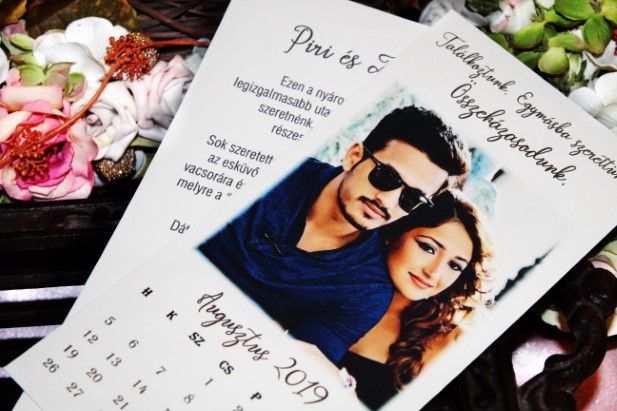 Piri és
Ezen a nyáro
legizgalmasabb uta
szeretnénk
része
Sok szeretett
az esküvő
vacsorára é
melyre a "
Találkoztunk. Egymásba szerettün
Összeházasodunk.
Augusztus 2019
H K SZ CS P
1
5 6 7 8
12 13 14
19 20
26 27